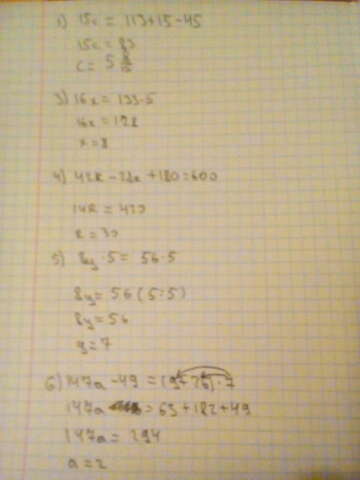 1) 15c = 113+15-45
15c = 83
c = 5 8/15
3) 16x = 133-5
16x = 128
x = 8
4) 42x - 28x + 180 = 600
14x = 420
x = 30
5) 8y · 5 = 56 · 5
8y = 56 (5:5)
8y = 56
y = 7
6) 147a - 49 = (9+26) · 7
147a = 63 + 182 + 49
147a = 294
a = 2